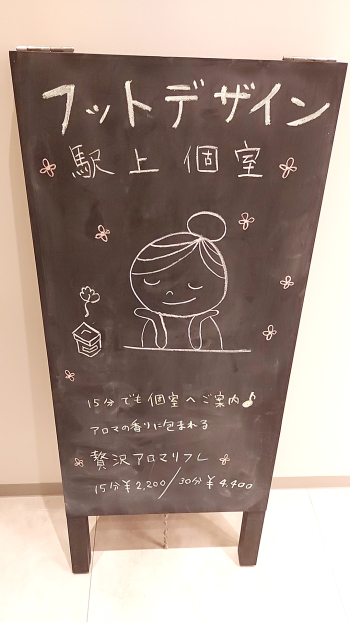 フットデザイン
駅上個室
15分でも個室へご案内♪
アロマの香りに包まれる
贅沢アロマリフレ
15分¥2,200/30分¥4,400